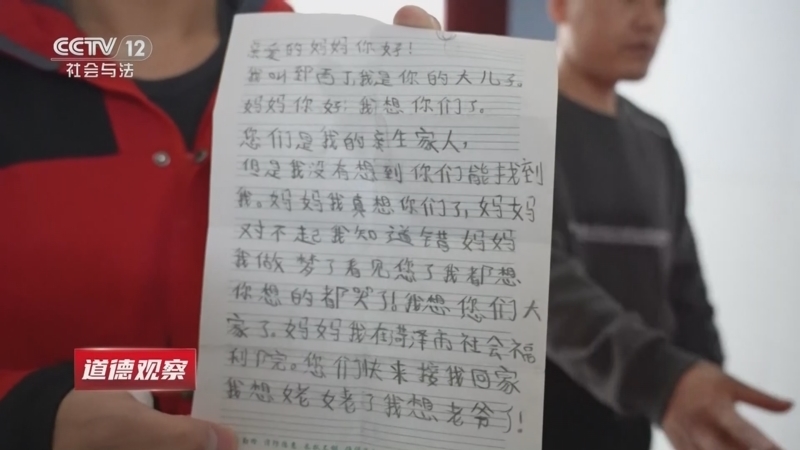 CCTV 12
社会与法
亲爱的妈妈你好！
我叫郓西了我是你的大儿子。
妈妈你好：我想你们了。
您们是我的亲生家人，
但是我没有想到你们能找到
我。妈妈我真想你们了，妈妈
对不起我知道错妈妈
我做梦了看见您了我都想
你想的都哭了！我想您们大
家了。妈妈我在菏泽市社会福
利院。您们快来接我回家
我想姥姥了我想老爷了！
道德观察